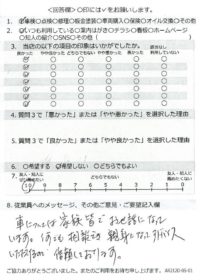 <回答欄> ○印には✓をお願いします。
1. ✓車検○点検○修理○板金塗装○車両購入○保険○オイル交換○その他
2. ✓いつも利用している○案内はがき○チラシ○看板○ホームページ
○知人の紹介○SNS○その他( )
3. 当店の以下の項目の印象はいかがでしたか。
4. 質問3で「悪かった」または「やや悪かった」を選択した理由
5. 質問3で「良かった」または「やや良かった」を選択した理由
6. ○希望する ✓希望しない ○どちらでもよい
7. 友人・知人に
10 9 8 7 6 5 4 3 2 1 0
8. 従業員へのメッセージ、その他ご意見・ご要望記入欄
車については家族皆でお世話になって
います。何でも相談でき親身になってアドバイス
いただけるので信頼しております。
ご協力ありがとうございました。またのご利用をお待ち申し上げます。